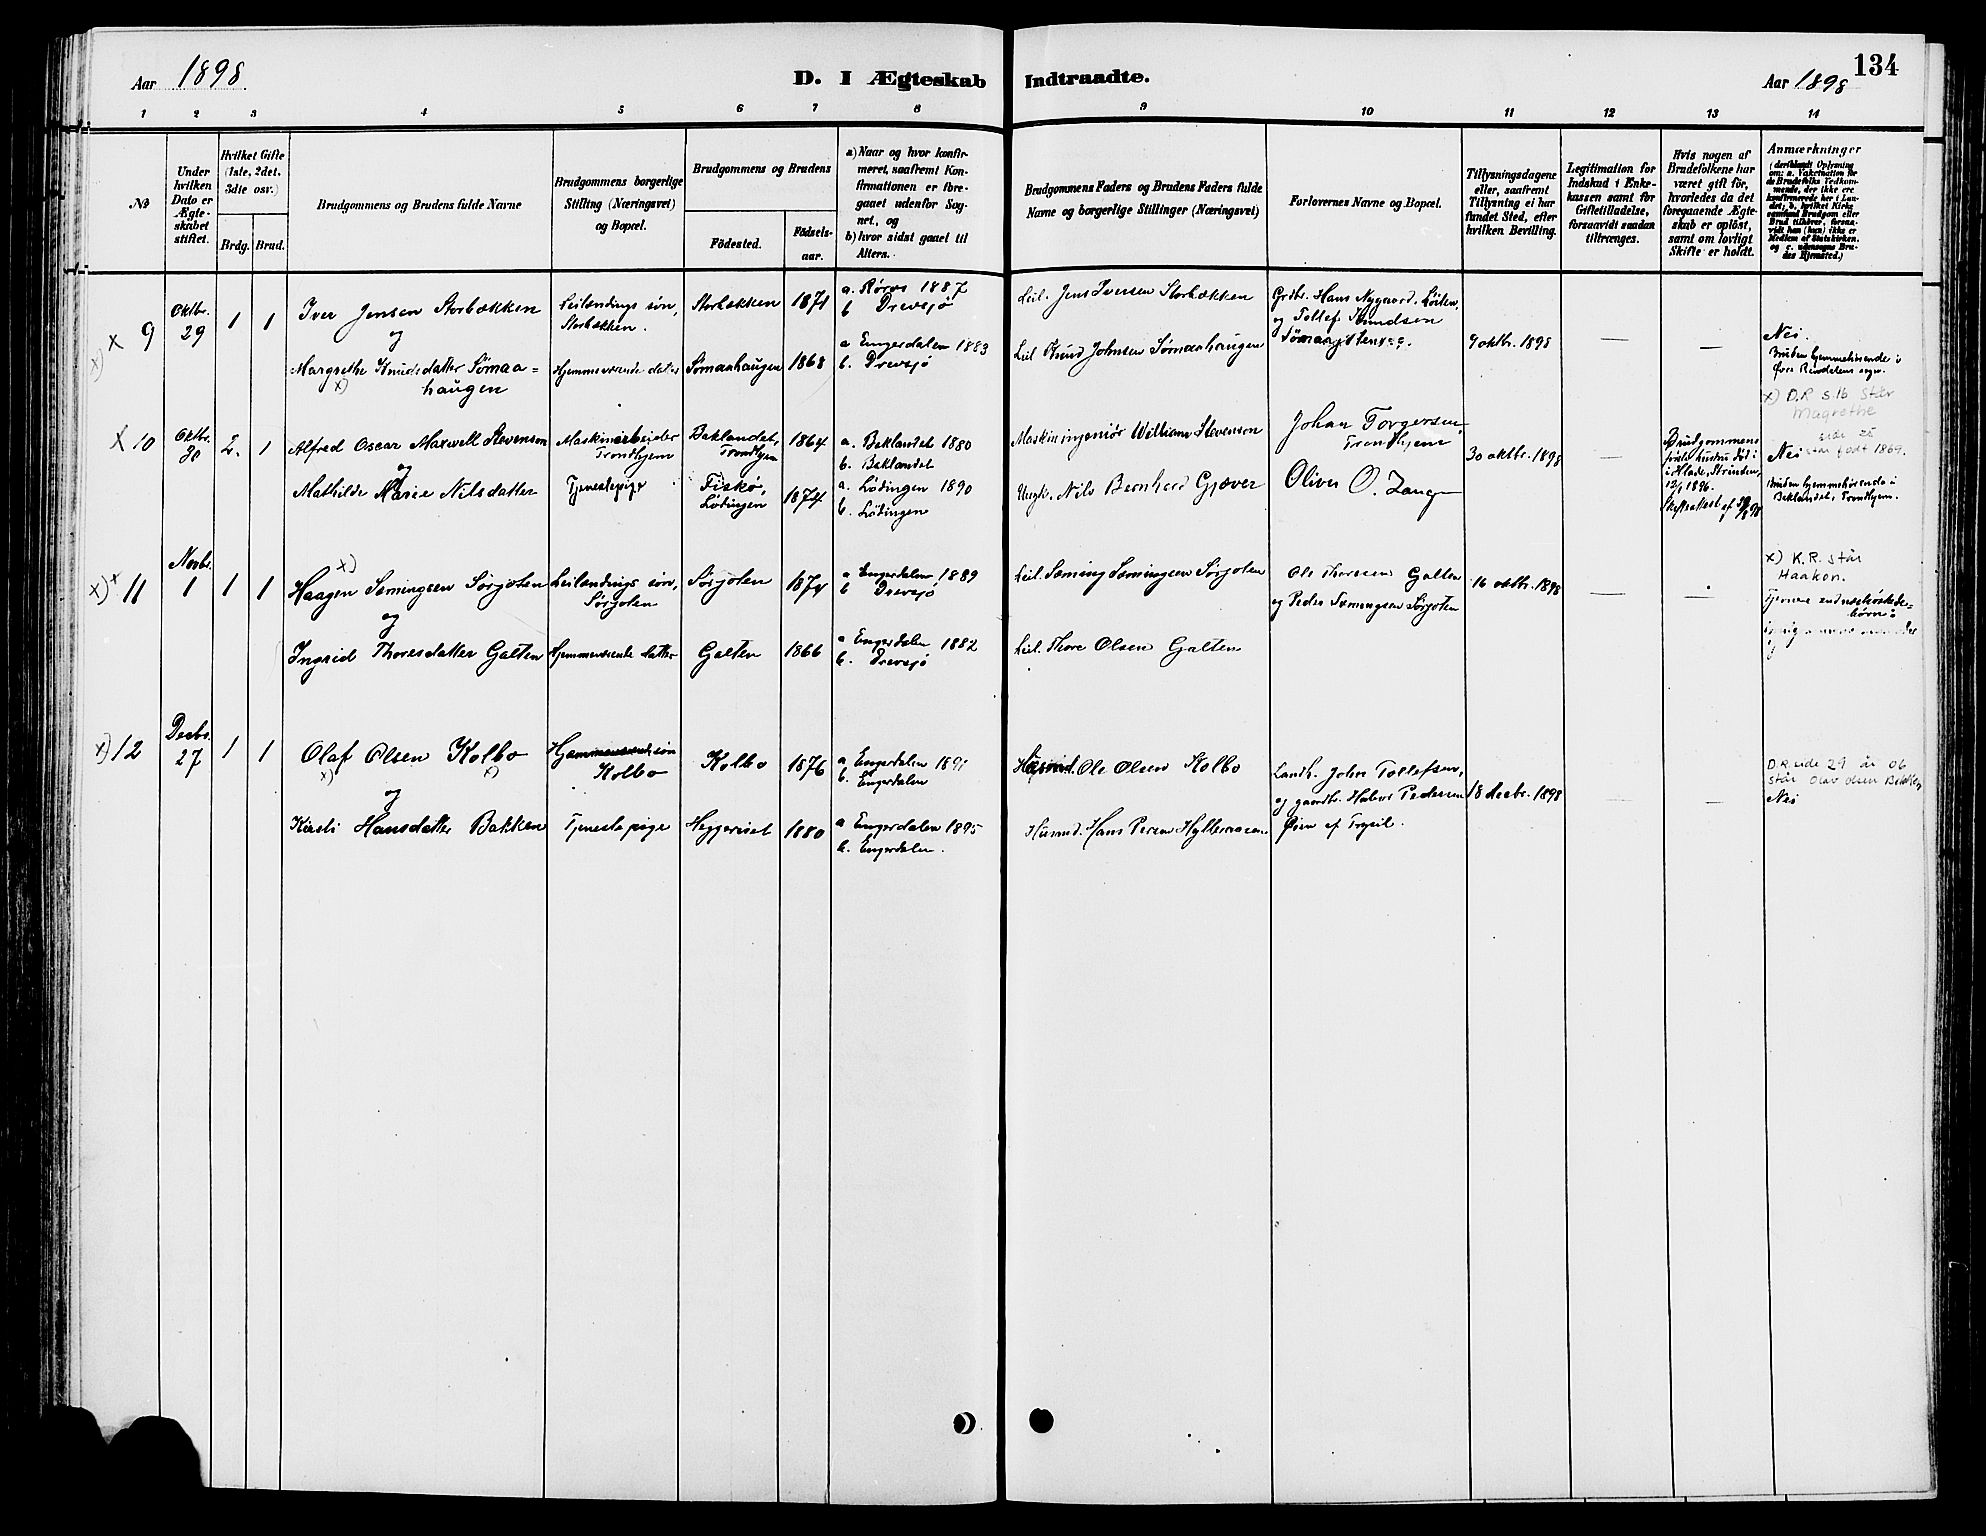 134
Aar 1898
D. I Ægteskab Indtraadte.
Aar 1898
1 2 3 4 5 6 7 8 9 10 11 12 13 14
№
Under
hvilken
Dato er
Ægte-
skabet
stiftet.
Hvilket Gifte
(1ste, 2det,
3die osv.)
Brdg. Brud.
Brudgommens og Brudens fulde Navne
Brudgommens borgerlige
Stilling (Næringsvei)
og Bopæl.
Brudgommens og Brudens
Födested.
Födsels-
aar.
a) Naar og hvor konfir-
meret, saafremt Kon-
firmationen er fore-
gaaet udenfor Sog-
net, og
b) hvor sidst gaaet til
Alters.
Brudgommens Faders og Brudens Faders fulde
Navne og borgerlige Stillinger (Næringsvei)
Forlovernes Navne og Bopæl.
Tillysningsdagene
eller, saafremt
Tillysning ei har
fundet Sted, efter
hvilken Bevilling.
Legitimation for
Indskud i Enke-
kassen samt for
Giftetilladelse,
forsaavidt saadan
tiltrænges.
Hvis nogen af
Brudefolkene har
været gift för,
hvorledes da det
foregaaende Ægte-
skab er oplöst,
samt om lovligt
Skifte er holdt.
Anmærkninger
(deriblandt Oplysning
om: a. Vakcination for
de Brudefolks Vedkom-
mende, der ikke ere
konfirmerede her i Lan-
det; b. hvilket Kirke-
samfund Brudgom eller
Brud tilhörer, forsaa-
vidt han (hun) ikke er
Medlem af Statskirken,
og c. udensogns Bru-
des Hjemsted.)
x) x 9
Oktbr.
29
1 1
Iver Jensen Storbækken
og
Margrethe Knudsdatter Sømaa=
x) haugen
Leilændings søn,
Storbækken.
Hjemmeværende datter
Storbækken 1874
Sømaahaugen 1868
a. Røros 1887
b Drevsjø
a Engerdalen 1883
b. Drevsjø
Leil. Jens Iversen Storbækken
Leil Knud Johnsen Sømaahaugen
Grdbr. Hans Nygaard, Løiten,
og Tollef Knudsen
9 oktbr. 1898
—
—
Nei.
Bruden hjemmehørende i
Øvre Rendalens sogn.
x) D.R s.16 står
Magrethe
side 25
står født 1869.
X 10
Oktbr.
30
2. 1
Alfred Oscar Maxwell Stevenson
og
Mathilde Marie Nilsdatter
Maskinarbeider
Trondhjem
Tjenestepige
Baklandet,
Trondhjem 1864
Fiskø,
Lødingen 1874
a. Baklandet 1880
b. Baklandet
a. Lødingen 1890
b. Lødingen
Maskiningeniør William Stevenson
Ungk. Nils Bernhard Gjæver
Johan Torgersen,
Trondhjem
Oliver O.
30 oktbr. 1898
—
Brudgommens
første hustru død i
i Hlade, Strinden,
1896.
Skifteattest af
Nei
Bruden hjemmehørende i
Baklandet, Trondhjem.
x) x 11
Novbr.
1
1 1
x)
Haagen Sæmingsen Sørjoten
og
Ingrid Thoresdatter Galten
Leilændings søn,
Sørjoten
Hjemmeværende datter
Sørjoten 1874
Galten 1866
a Engerdalen 1889
b Drevsjø
a Engerdalen 1882
b. Drevsjø
Leil. Sæming Sæmingsen Sørjoten
Leil. Thore Olsen Galten
Ole Thoresen Galten
og Peder Sæmingsen Sørjoten
16 oktbr. 1898
—
—
x) K.R. står
Haaken.
x) 12
Decbr.
27
1 1
Olaf Olsen Kolbo
x) x)
og
Kirsti Hansdatter Bakken
Hjemmeværende søn
Kolbo
Tjenestepige
Kolbo 1876
Heggeriset 1880
a Engerdalen 1891
b. Engerdalen
a Engerdalen 1895
b. Engerdalen.
Husmd. Ole Olsen Kolbo
Husmd. Hans Persen Hylleraasen
Landh. John Tollefsen,
og gaardbr. Halvor Pedersen
Øien af Trysil.
18 decbr. 1898
—
—
D.R. side 29 år 06
står Olav Olsen Bakken
Nei